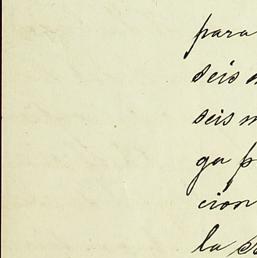 para
seis
seis m
ga p
cion
la